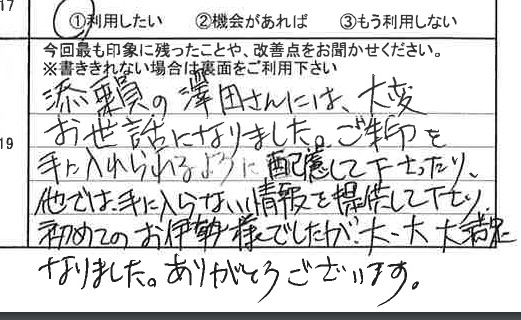 17
①利用したい ②機会があれば ③もう利用しない
今回最も印象に残ったことや、改善点をお聞かせください。
※書ききれない場合は裏面をご利用下さい
19
添乗員の澤田さんには、大変
お世話になりました。ご朱印を
手に入れられるように配慮して下さったり、
他では、手に入らない情報を提供して下さり、
初めてのお伊勢様でしたが、大、大大満足に
なりました。ありがとうございます。